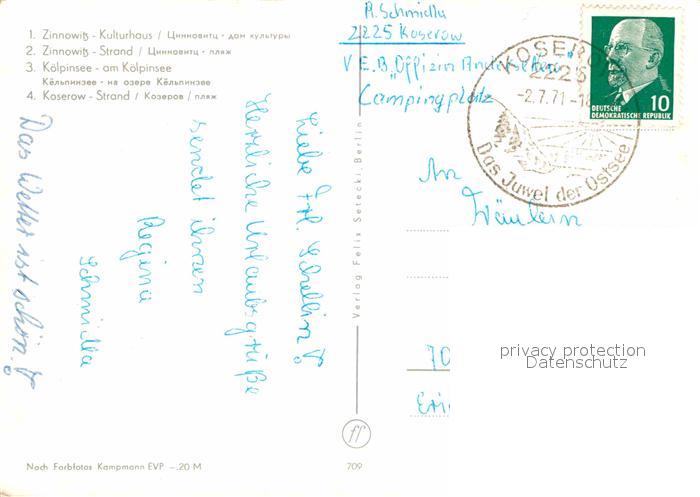 1. Zinnowitz - Kulturhaus / Цинновитц · дом культуры
2. Zinnowitz - Strand / Цинновитц · пляж
3. Kölpinsee - am Kölpinsee
Кёльпинзее · на озере Кёльпинзее
4. Koserow - Strand / Козеров / пляж
R. Schmidla
2225 Koserow
V.E.B. „Offizin
Campingplatz
KOSEROW
2225
-2.7.71-
Das Juwel der Ostsee
DEUTSCHE
DEMOKRATISCHE REPUBLIK
10
An
Fräulein
70
Liebe Frl. Schellin!
Herzliche Urlaubsgrüße
sendet ihnen
Regina
Schmidla
Das Wetter ist schön!
Verlag Felix Setecki, Berlin
privacy protection
Datenschutz
ff
Nach Farbfotos Kampmann EVP -,20 M
709